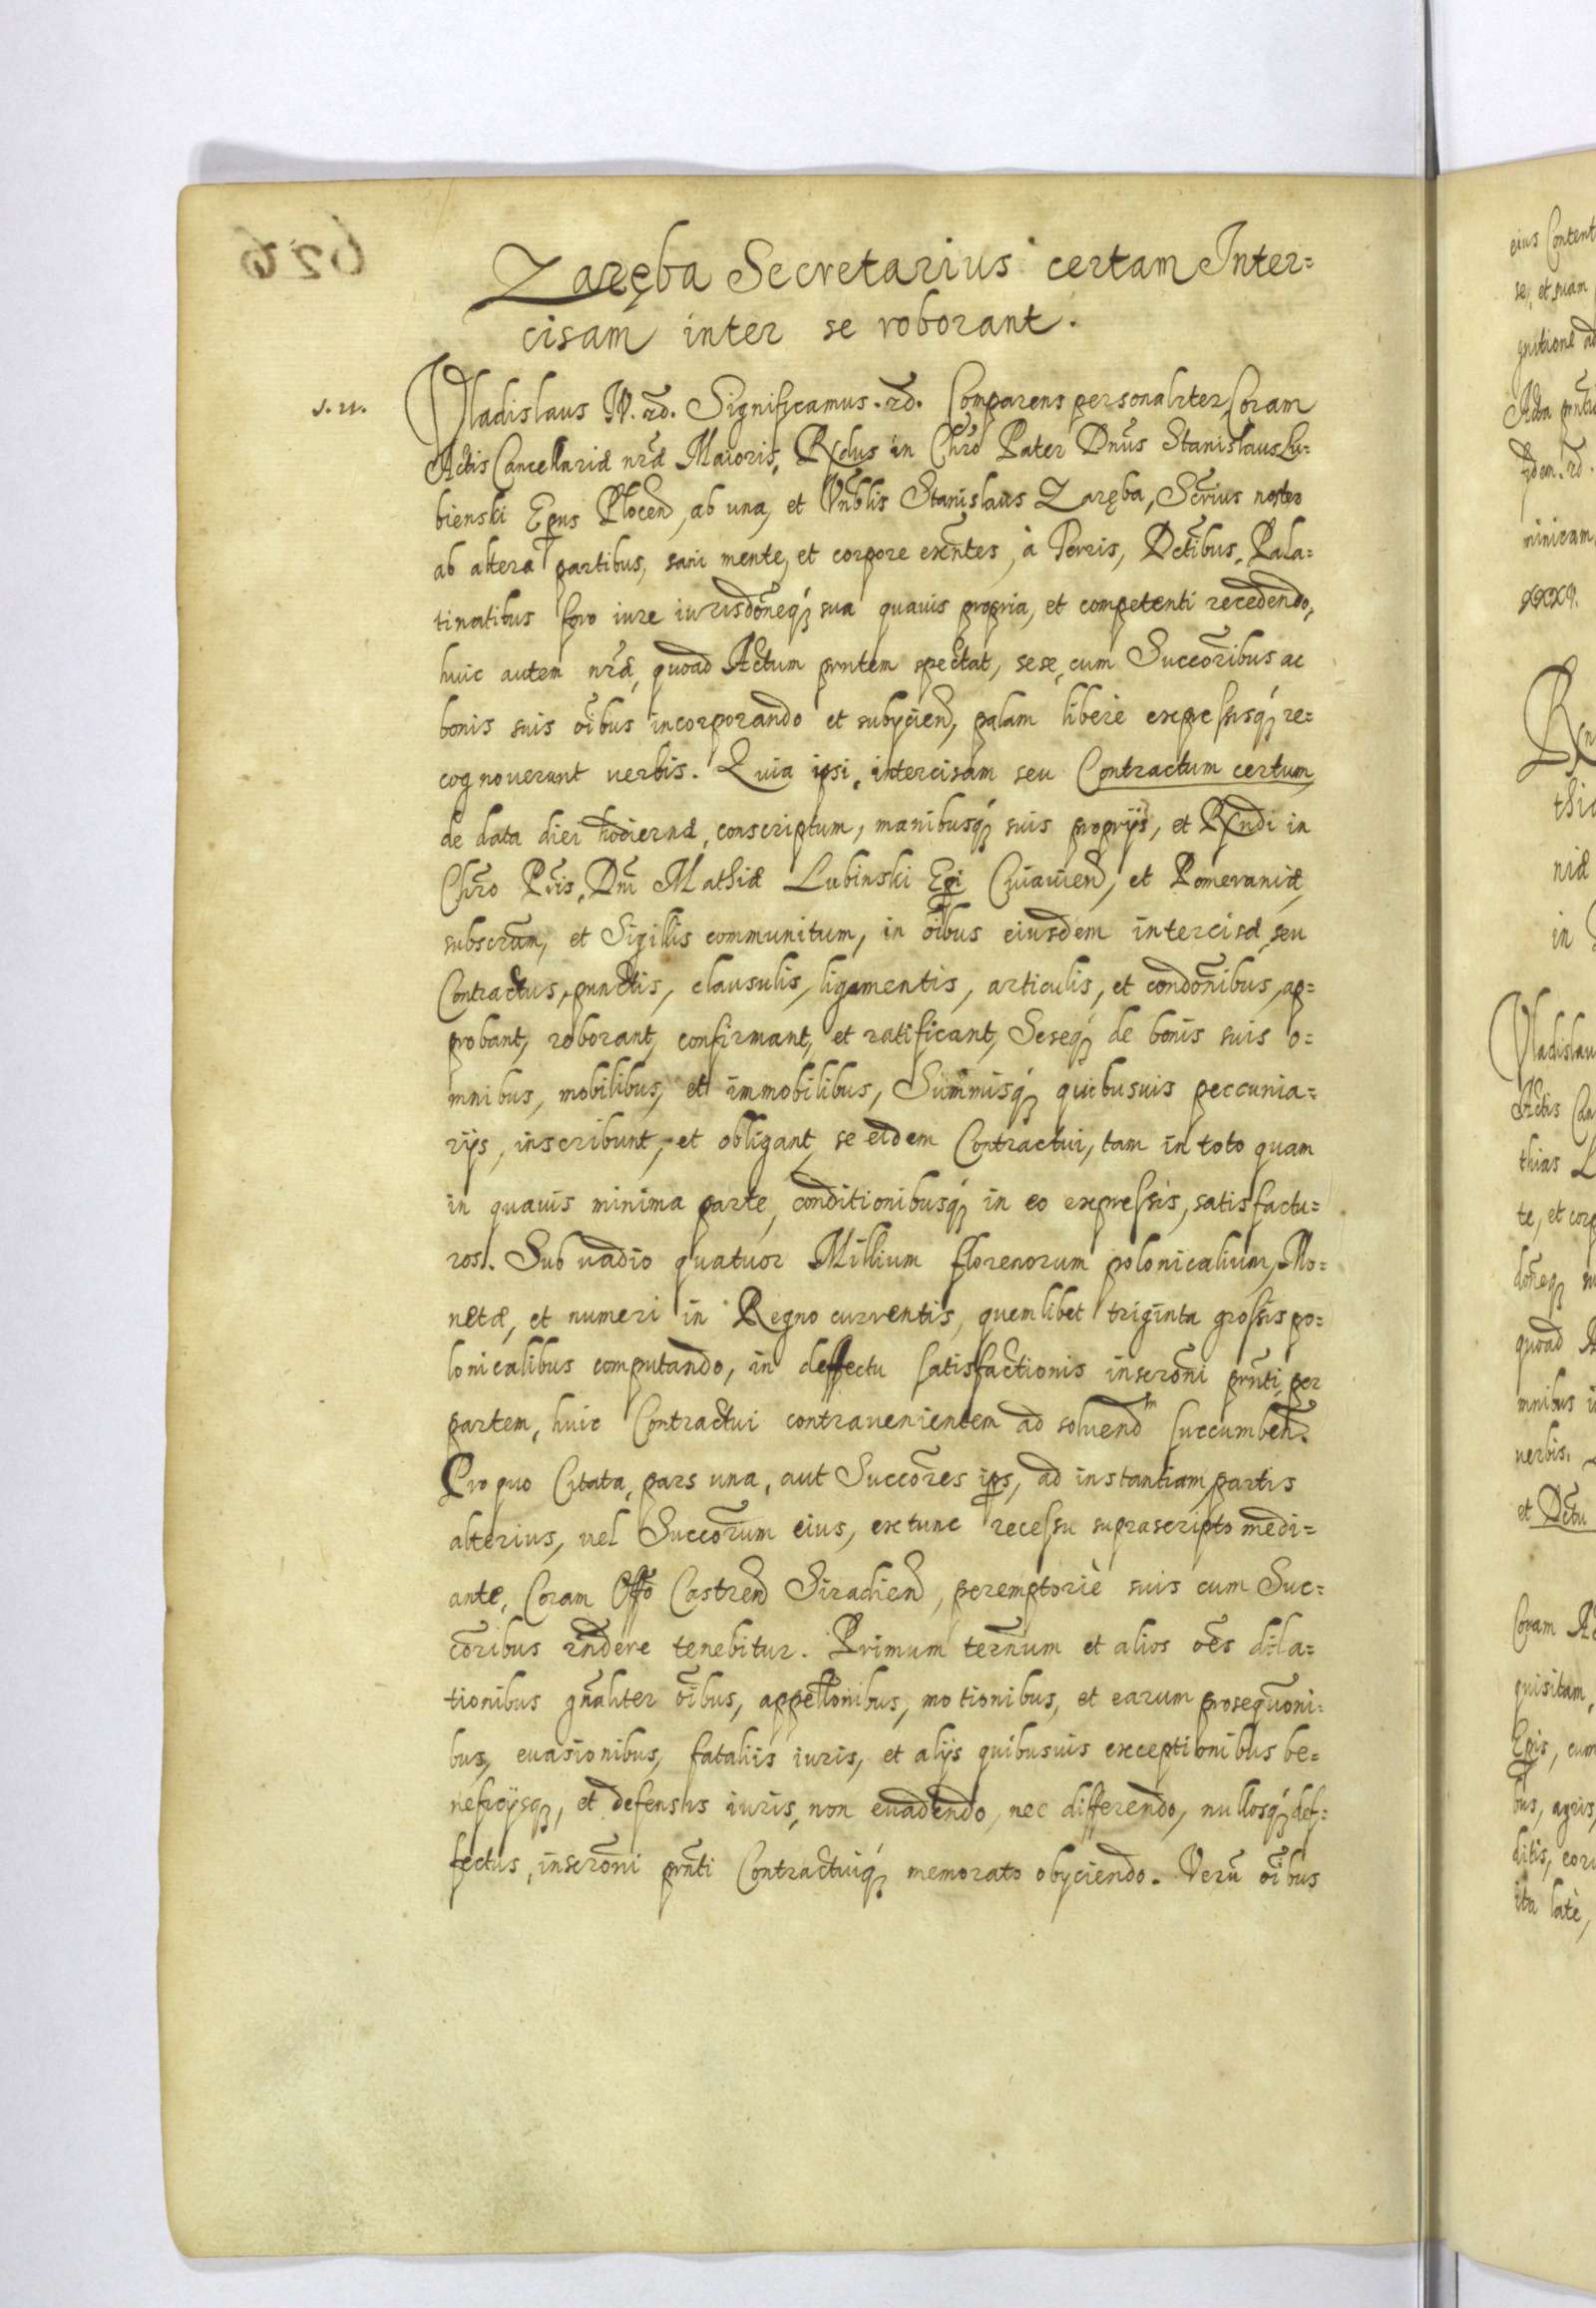 626
Zaręba Secretarius certam Inter=
cisam inter se roborant.
J. u.
Vladislaus IV. etc. Significamus. etc. Comparens personaliter Coram
Actis Cancellariæ nr̃æ Maioris, Rx̃dus in Chr̃o Pater Dnũs Stanislaus Lu=
bienski Ep̃us Plocen̄, ab una, et Vn̄blis Stanislaus Zaręba, Scr̃ius noster
ab altera partibus, sani mente, et corpore exñtes, à Terris, Dctĩbus, Pala=
tinatibus foro iure iurisdõneq́; sua quauis propria, et competenti recedendo,
huic autem nr̃æ, quoad Actum prñtem spectat, sese, cum Succõribus ac
bonis suis oĩbus incorporando et subycien̄, palam libere expressisq́; re=
cognouerunt uerbis. Quia ipsi, intercisam seu Contractum certum,
de data diei hodiernæ, conscriptum, manibusq́; suis proprijs, et Rx̃ndi in
Chr̃o Pr̃is, Dnĩ Mathiæ Lubinski Ep̃i Cuiauien̄, et Pomeraniæ,
subscr̃am, et Sigillis communitum, in oĩbus eiusdem intercisæ, seu
Contractus, punctis, clausulis, ligamentis, articulis, et condõnibus, ap=
probant, roborant, confirmant, et ratificant, Seseq́; de bonis suis o=
mnibus, mobilibus, et immobilibus, Summisq́; quibusuis peccunia=
rijs, inscribunt, et obligant, se eidem Contractui, tam in toto quam
in quauis minima parte, conditionibusq́; in eo expressis, satisfactu=
ros. Sub uadio quatuor Millium florenorum polonicalium, Mo=
netæ, et numeri in Regno currentis, quemlibet triginta grossis po=
lonicalibus computando, in deffectu satisfactionis inscrõni prñti per
partem, huic Contractui contrauenientem ad soluendm succumben̄.
Pro quo Citata, pars una, aut Succõres ip̃s, ad instantiam partis
alterius, uel Succõrum eius, extunc recessu suprascripto medi=
ante, Coram Offõ Castren̄ Siradien̄, peremptoriè suis cum Suc=
cõribus rñdere tenebitur. Primum ter̃num et alios oẽs dila=
tionibus gñaliter oĩbus, appellõnibus, motionibus, et earum prosequũoni=
bus, euasionibus, fataliis iuris, et alijs quibusuis exceptionibus be=
neficÿsq́;, et defensis iuris, non euadendo, nec differendo, nullosq́; def=
fectus, inscrõni prñti Contractuiq́; memorato obyciendo. Verũ oĩbus